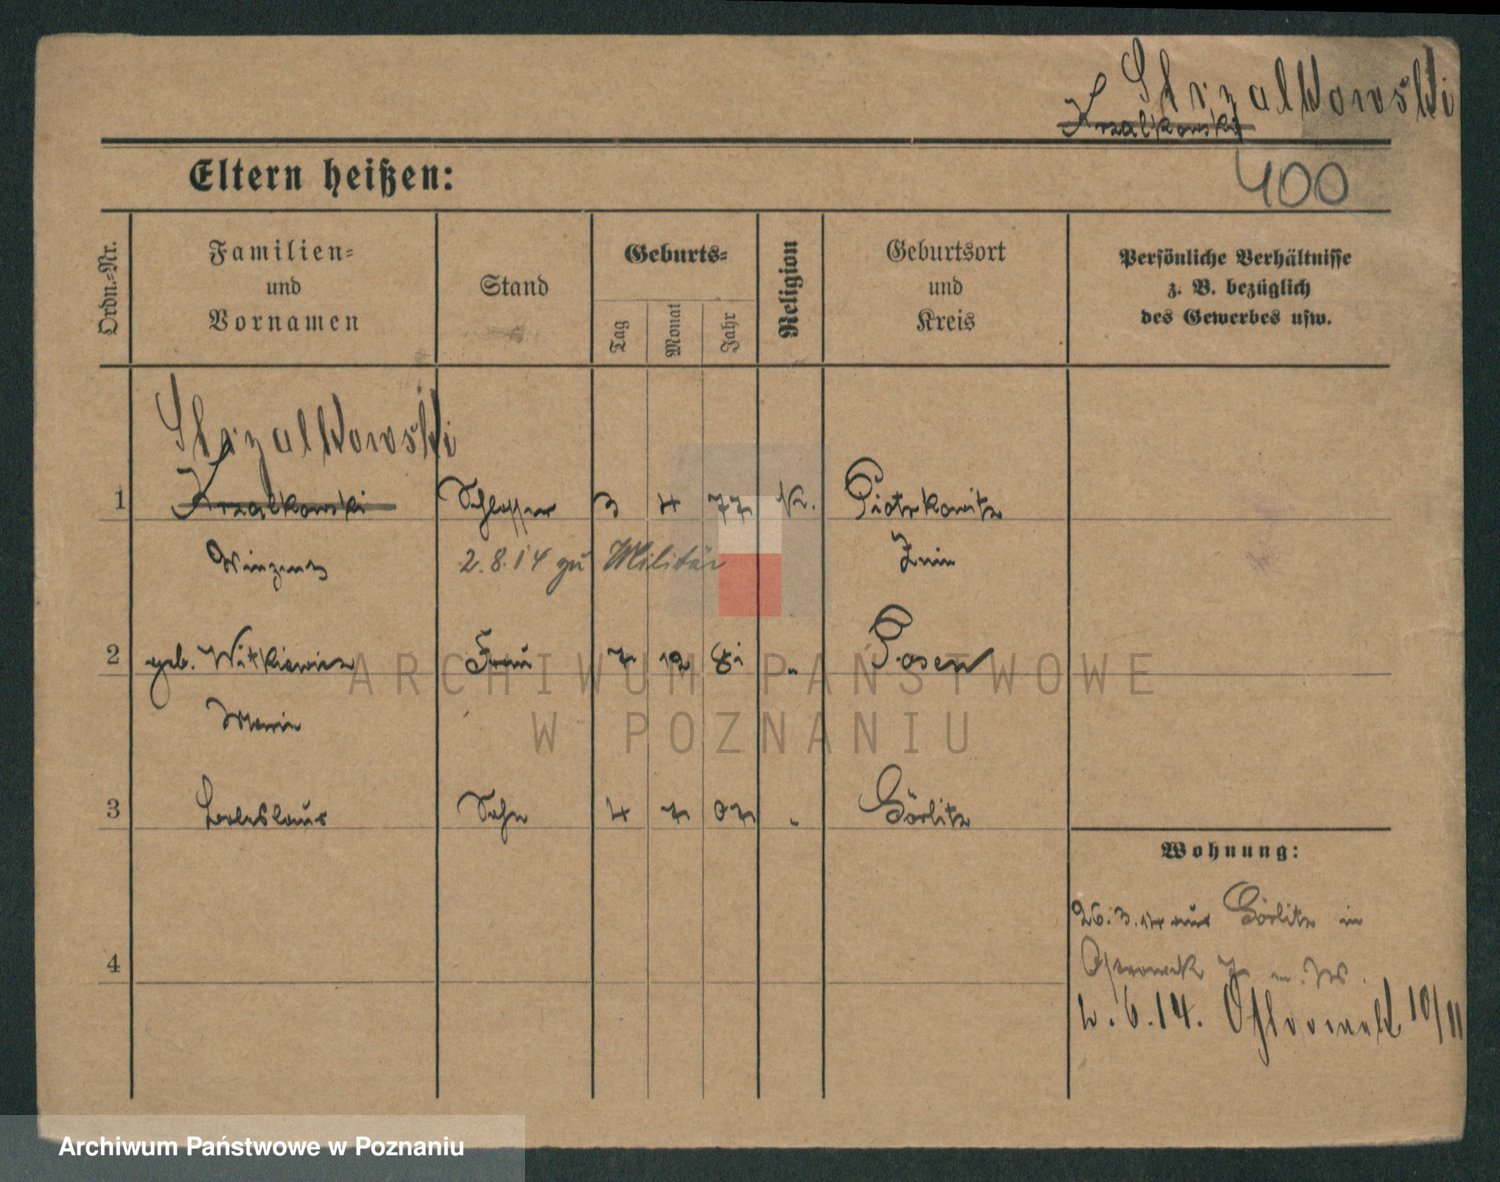 Strzalkowski
Krzalkowski
400
Eltern heißen:
Ordn.=Nr.
Familien=
und
Vornamen
Stand
Geburts=
Tag
Monat
Jahr
Religion
Geburtsort
und
Kreis
Persönliche Verhältnisse
z. B. bezüglich
des Gewerbes usw.
Strzalkowski
1 Krzalkowski Schlosser 3 4 77 K. Piotrkowitz
Winzent 2.8.14 zu Militär Znin
2 geb. Witkiewicz Frau 7 12 81 " Posen
Maria
3 Boleslaus Sohn 4 7 07 " Görlitz
4
Wohnung:
26.3.14 aus Görlitz in
Ostrowek 7
2.6.14. Ostrowek 10/11
ARCHIWUM PAŃSTWOWE
W POZNANIU
Archiwum Państwowe w Poznaniu